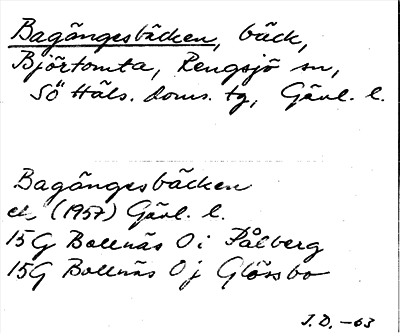 Bagängesbäcken, bäck,
Björtomta, Rengsjö sn,
SÖ Häls. doms. tg, Gävl. l.
Bagängesbäcken
ek (1957) Gävl. l.
15G Bollnäs 0i Pålberg
15G Bollnäs 0j Glössbo
J.D. -63